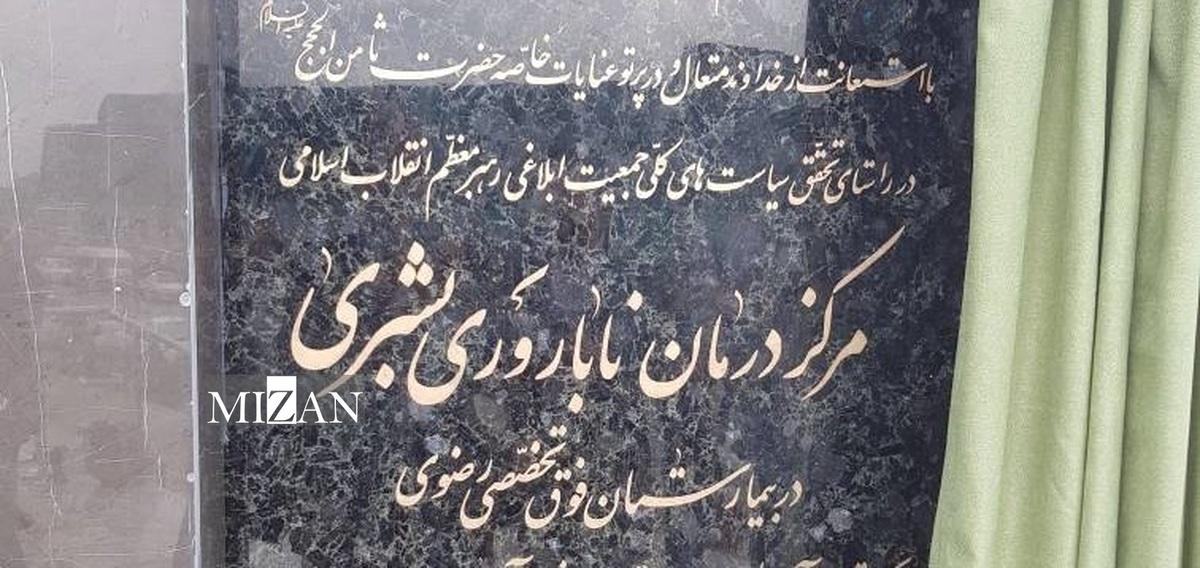 با استعانت از خداوند متعال و در پرتو عنایات خاصّه حضرت ثامن الحجج علیه السلام
در راستای تحقق سیاست های کلّی جمعیت ابلاغی رهبر معظّم انقلاب اسلامی
مرکز درمان ناباروری بشری
MIZAN
در بیمارستان فوق تخصّصی رضوی